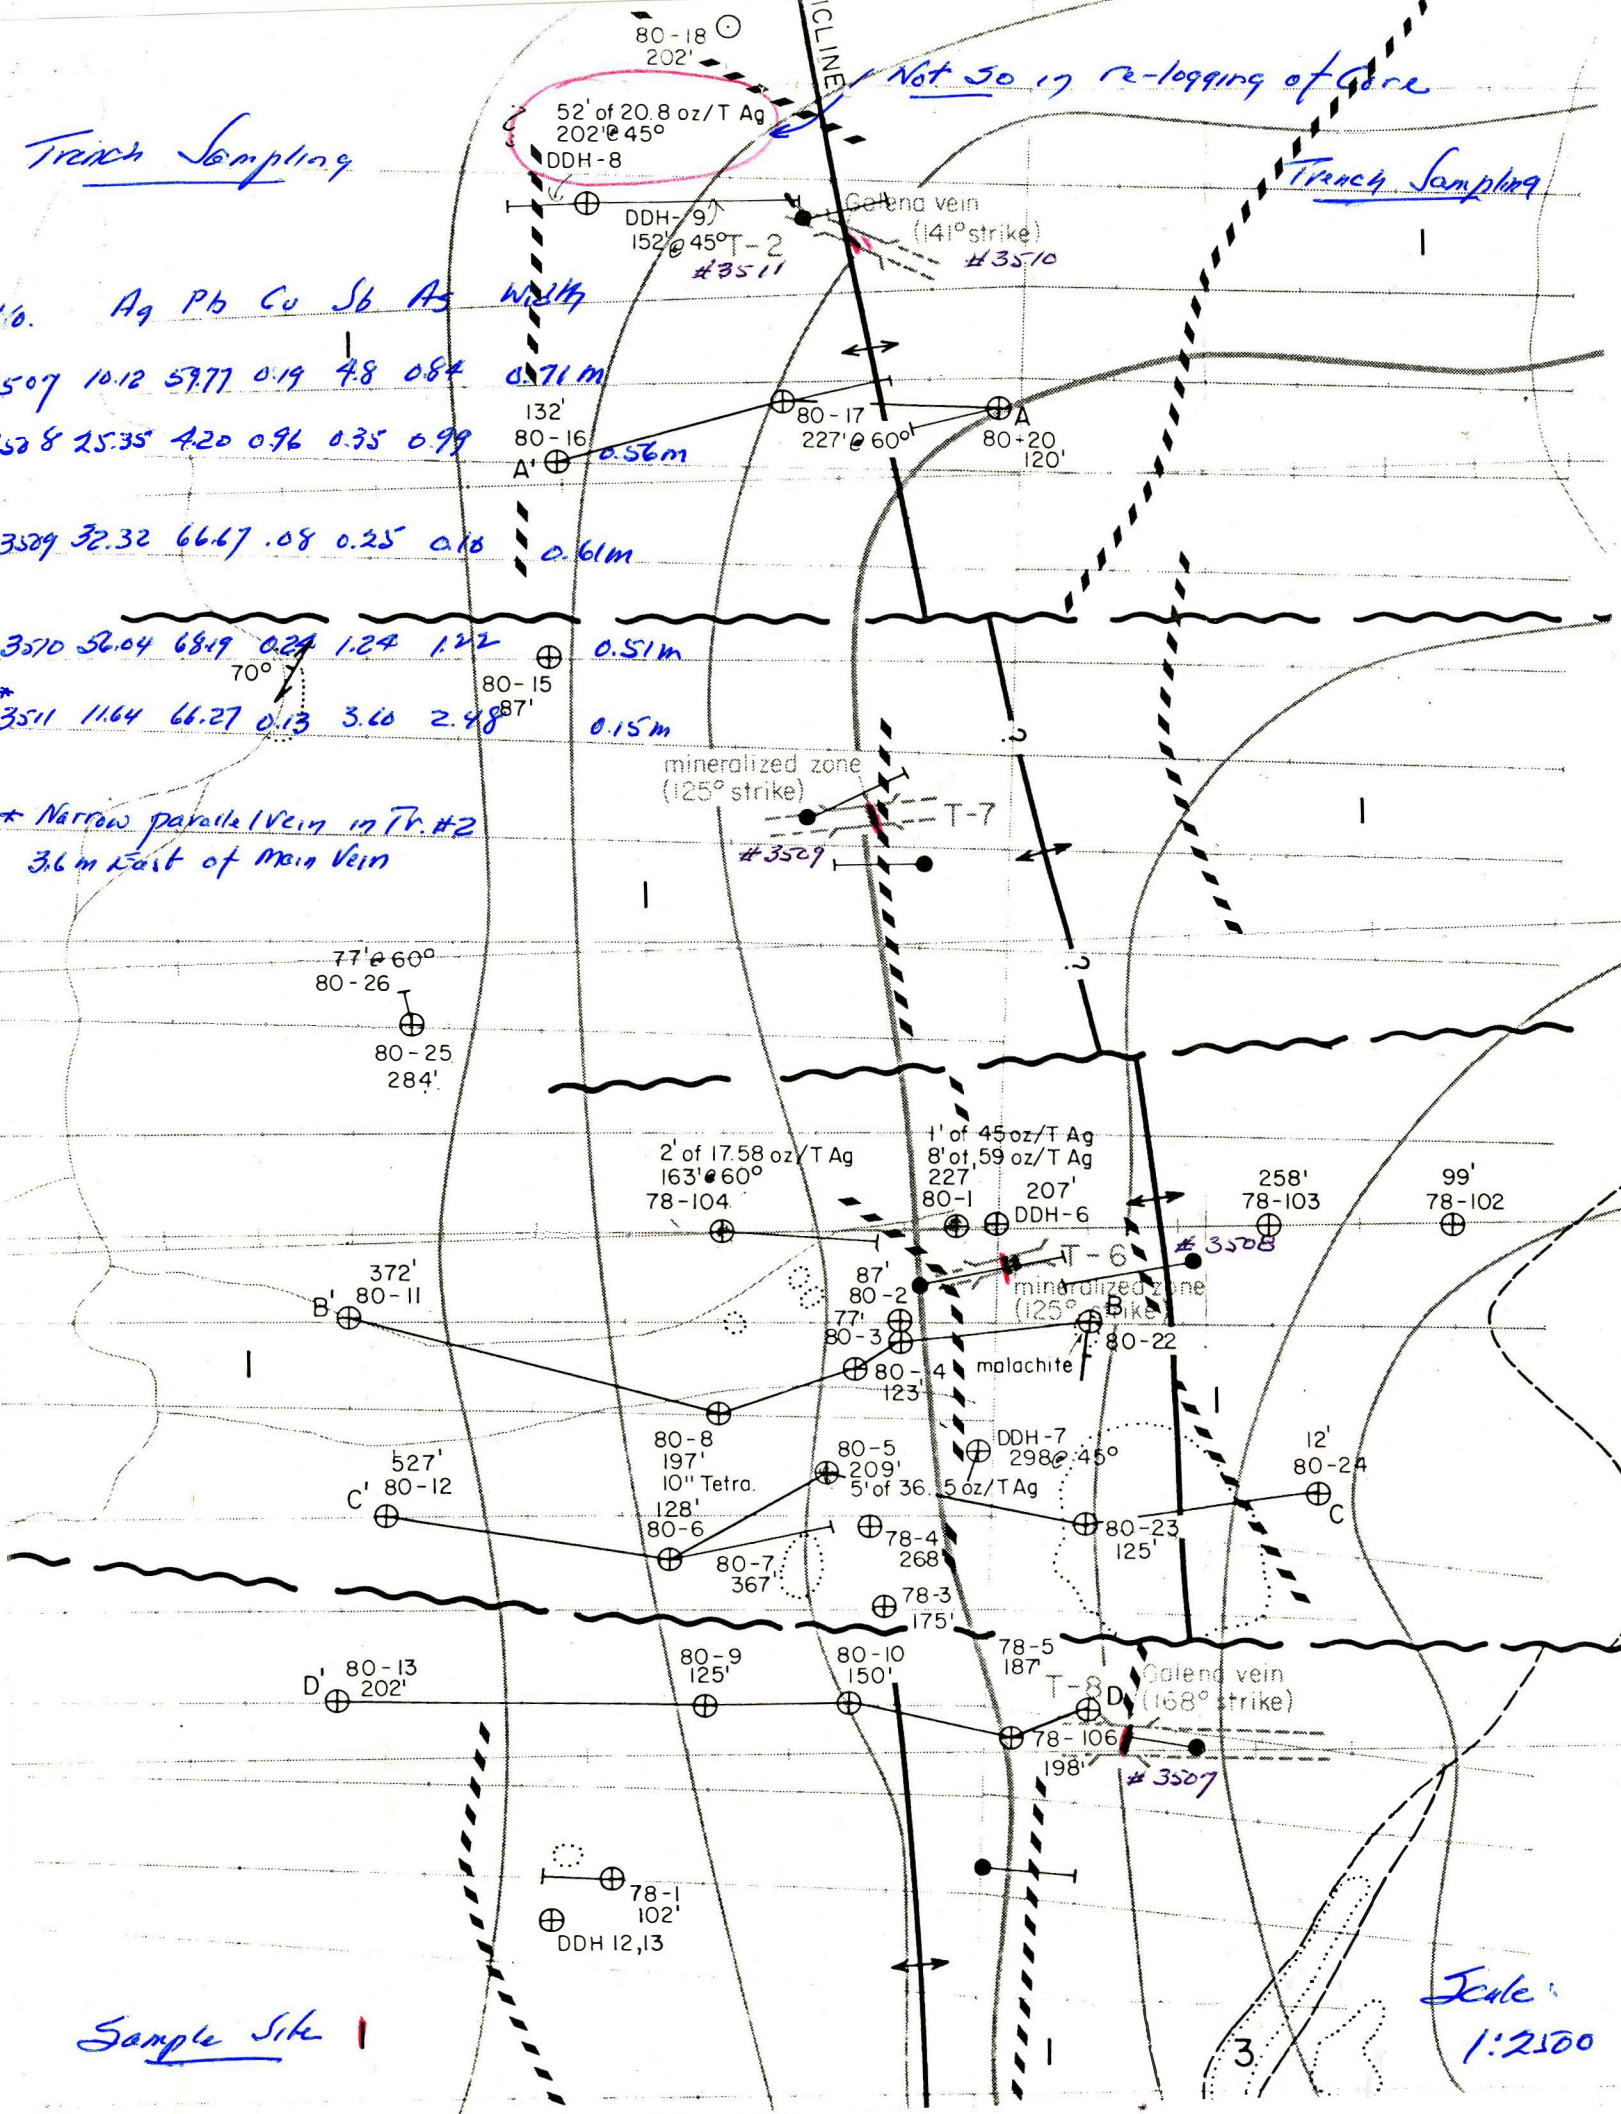 80-18
202'
ICLINE
Not So in re-logging of Core
52' of 20.8 oz/T Ag
202'@45°
DDH-8
Trench Sampling
Trench Sampling
DDH-9
152'@45°
T-2
#3511
Galena vein
(141° strike)
#3510
I
No. Ag Pb Cu Sb As Width
I
507 10.12 59.77 0.19 4.8 0.84 0.71 m
132'
80-16
A'
80-17
227'@60°
A
80+20
120'
508 25.35 4.20 0.96 0.35 0.99 0.56m
3509 32.32 66.67 .08 0.25 0.10 0.61m
3510 56.04 68.19 0.24 1.24 1.22 0.51m
70°
80-15
87'
3511 11.64 66.27 0.13 3.60 2.48 0.15m
*
?
mineralized zone
(125° strike)
T-7
I
#3509
* Narrow parallel vein in Tr. #2
3.6 m East of Main Vein
I
?
77'@60°
80-26
80-25
284'
2' of 17.58 oz/T Ag
163'@60°
78-104
1' of 45 oz/T Ag
8' of .59 oz/T Ag
227
80-1
207'
DDH-6
258'
78-103
99'
78-102
#3508
T-6
mineralized zone
(125° strike)
372'
80-11
B'
87'
80-2
77'
80-3
B
80-22
malachite
80-4
123'
I
I
80-8
197'
10" Tetra.
80-5
209'
5' of 36.5 oz/T Ag
DDH-7
298@45°
12'
80-24
C
527'
80-12
C'
128'
80-6
80-7
367'
78-4
268'
80-23
125'
78-3
175'
80-13
202'
D'
80-9
125'
80-10
150'
78-5
187'
T-8
D
Galena vein
(168° strike)
78-106
198'
#3507
78-1
102'
DDH 12,13
Sample Site
I
3
Scale:
1:2500